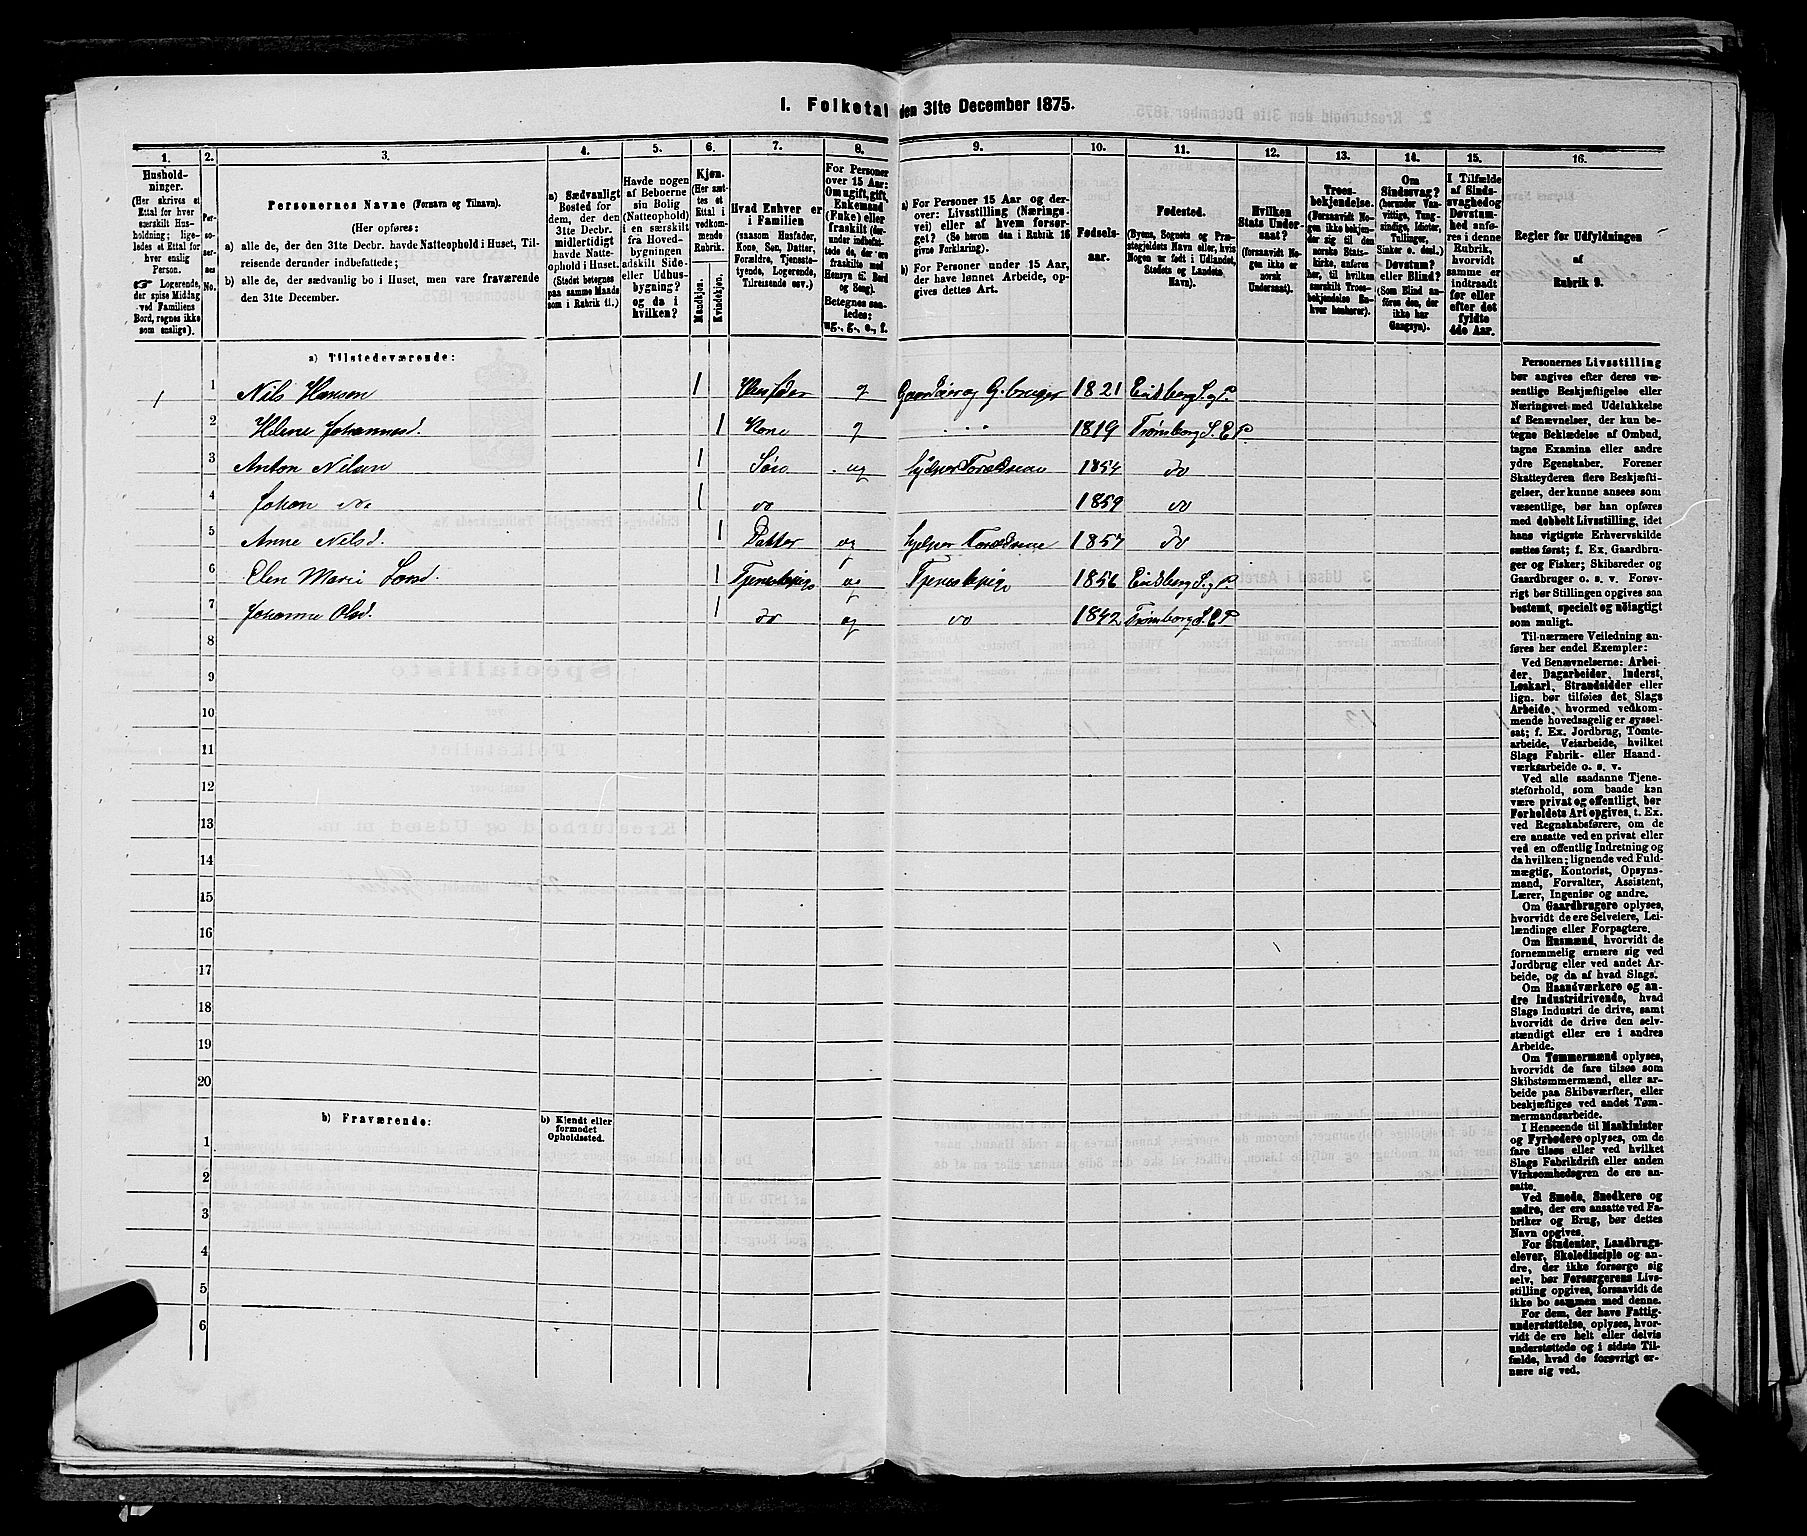 1. Folketal den 31te December 1875.
1. 2. 3. 4. 5. 6. 7. 8. 9. 10. 11. 12. 13. 14. 15. 16.
Hushold-
ninger.
(Her skrives et
Ettal for hver
særskilt Hus-
holdning; lige-
ledes et Ettal for
hver enslig
Person.
☞ Logerende,
der spise Middag
ved Familiens
Bord, regnes ikke
som enslige).
Per-
so-
ner-
nes
No.
Personernes Navne (Fornavn og Tilnavn).
(Her opføres:
a) alle de, der den 31te Decbr. havde Natteophold i Huset, Til-
reisende derunder indbefattede;
b) alle de, der sædvanlig bo i Huset, men vare fraværende
den 31te December.
a) Sædvanligt
Bosted for
dem, der den
31te Decbr.
midlertidigt
havde Natte-
ophold i Huset.
(Stedet betegnes
paa samme Maade
som i Rubrik 11.)
Havde nogen
af Beboerne
sin Bolig
(Natteophold)
i en særskilt
fra Hoved-
bygningen
adskilt Side-
eller Udhus-
bygning?
og da i
hvilken?
Kjøn.
(Her sæt-
tes et
Ettal i
vedkom-
mende
Rubrik.
Mandkjøn.
Kvindekjøn.
Hvad Enhver er
i Familien
(saasom Husfader,
Kone, Søn, Datter,
Forældre, Tjeneste-
tyende, Logerende,
Tilreisende osv.)
For Personer
over 15 Aar:
Om ugift, gift,
Enkemand
(Enke) eller
fraskilt (der-
under indbefat-
tede de, der ere
fraskilte med
Hensyn til Bord
og Seng).
Betegnes saa-
ledes:
ug., g., e., f.
a) For Personer 15 Aar og der-
over: Livsstilling (Nærings-
vei) eller af hvem forsør-
get? (Se herom den i Rubrik 16
givne Forklaring).
b) For Personer under 15 Aar,
der have lønnet Arbeide, op-
gives dettes Art.
Fødsels-
aar.
Fødested.
(Byens, Sognets og Præ-
stegjeldets Navn eller, hvis
Nogen er født i Udlandet,
Stedets og Landets
Navn).
Hvilken
Stats Under-
saat?
(forsaavidt No-
gen ikke er
norsk
Undersaat).
Troes-
bekjendelse.
(Forsaavidt No-
gen ikke bekjen-
der sig til den
norske Stats-
kirke, anføres
her, til hvilken
særskilt Troes-
bekjendelse En-
hver henhører).
Om
Sindssvag?
(herunder Van-
vittige, Tung-
sindige, Idioter,
Tullinger,
Sinker o. desl.)
Døvstum?
eller Blind?
(Som Blind an-
føres den, der
ikke har
Gangsyn).
I Tilfælde
af Sinds-
svaghed og
Døvstum-
hed anfø-
res i denne
Rubrik,
hvorvidt
samme er
indtraadt
før eller
efter det
fyldte
4de Aar.
Regler for Udfyldningen
af
Rubrik 9.
a) Tilstedeværende:
1 1 Nils Hansen 1 Husfader g Gaardeier og G. bruger 1821 Eidsberg S. o P.
2 Helene Johannesd. 1 Kone g " " " 1819 Trømborg S. E P.
3 Anton Nilsen 1 Søn ug hjelper Forældrene 1854 do
4 Johan do 1 do 1859 do
5 Anne Nilsd. 1 Datter ug hjelper Forældrene 1857 do
6 Elen Marie Larsd. 1 Tjenestepige ug Tjenestepige 1856 Eidsberg S. o P.
7 Johanne Olsd. 1 do ug do 1842 Trømborg S. E P
8
9
10
11
12
13
14
15
16
17
18
19
20
b) Fraværende:
b) Kjendt eller
formodet
Opholdssted.
1
2
3
4
5
6
Personernes Livsstilling
bør angives efter deres væ-
sentlige Beskjæftigelse eller
Næringsvei med Udelukkelse
af Benævnelser, der kun be-
tegne Beklædelse af Ombud,
tagne Examina eller andre
ydre Egenskaber. Forener
Skatteyderen flere Beskjæfti-
gelser, der kunne ansees som
væsentlige, bør han opføres
med dobbelt Livsstilling, idet
hans vigtigste Erhvervskilde
sættes først; f. Ex. Gaardbru-
ger og Fisker; Skibsreder og
Gaardbruger o. s. v. Forøv-
rigt bør Stillingen opgives saa
bestemt, specielt og nøiagtigt
som muligt.
Til nærmere Veiledning an-
føres her endel Exempler:
Ved Benævnelserne: Arbei-
der, Dagarbeider, Inderst,
Løskarl, Strandsidder eller
lign. bør tilføies det Slags
Arbeide, hvormed vedkom-
mende hovedsagelig er syssel-
sat; f. Ex. Jordbrug, Tomte-
arbeide, Veiarbeide, hvilket
Slags Fabrik- eller Haand-
værksarbeide o. s. v.
Ved alle saadanne Tjene-
steforhold, som baade kan
være privat og offentligt, bør
Forholdets Art opgives, t. Ex.
ved Regnskabsførere, om de
ere ansatte ved en privat eller
ved en offentlig Indretning og
da hvilken; lignende ved Fuld-
mægtig, Kontorist, Opsyns-
mand, Forvalter, Assistent,
Lærer, Ingeniør og andre.
Om Gaardbrugere oplyses,
hvorvidt de ere Selveiere, Lei-
lændinge eller Forpagtere.
Om Husmænd, hvorvidt de
fornemmelig ernære sig ved
Jordbrug eller ved andet Ar-
beide, og da af hvad Slags.
Om Haandværkere og an-
dre Industridrivende, hvad
Slags Industri de drive, samt
hvorvidt de drive den selv-
stændigt eller ere i andres
Arbeide.
Om Tømmermænd oplyses,
hvorvidt de fare tilsøs som
Skibstømmermænd, eller ar-
beide paa Skibsværfter, eller
beskjæftiges ved andet Tøm-
mermandsarbeide.
I Henseende til Maskinister
og Fyrbødere oplyses, om de
fare tilsøs eller ved hvilket
Slags Fabrikdrift eller anden
Virksomhedsgren de ere an-
satte.
Ved Smede, Snedkere og
andre, der ere ansatte ved Fa-
briker og Brug, bør dettes
Navn opgives.
For Studenter, Landbrugs-
elever, Skoledisciple og an-
dre, der ikke forsørge sig
selv, bør Forsørgerens Livs-
stilling opgives, forsaavidt de
ikke bo sammen med denne.
For dem, der have Fattig-
understøttelse, oplyses, hvor-
vidt de ere helt eller delvis
understøttede og i sidste Til-
fælde, hvad de forøvrigt er-
nære sig ved.